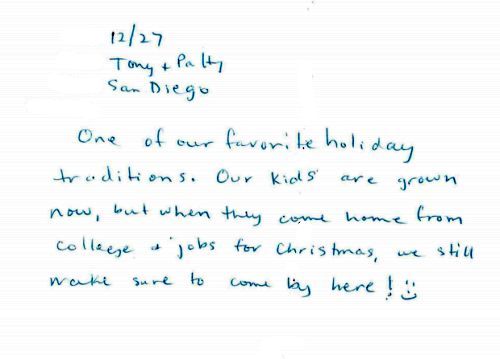 12/27
Tony + Patty
San Diego
One of our favorite holiday
traditions. Our kids are grown
now, but when they come home from
college + jobs for Christmas, we still
make sure to come by here! :)